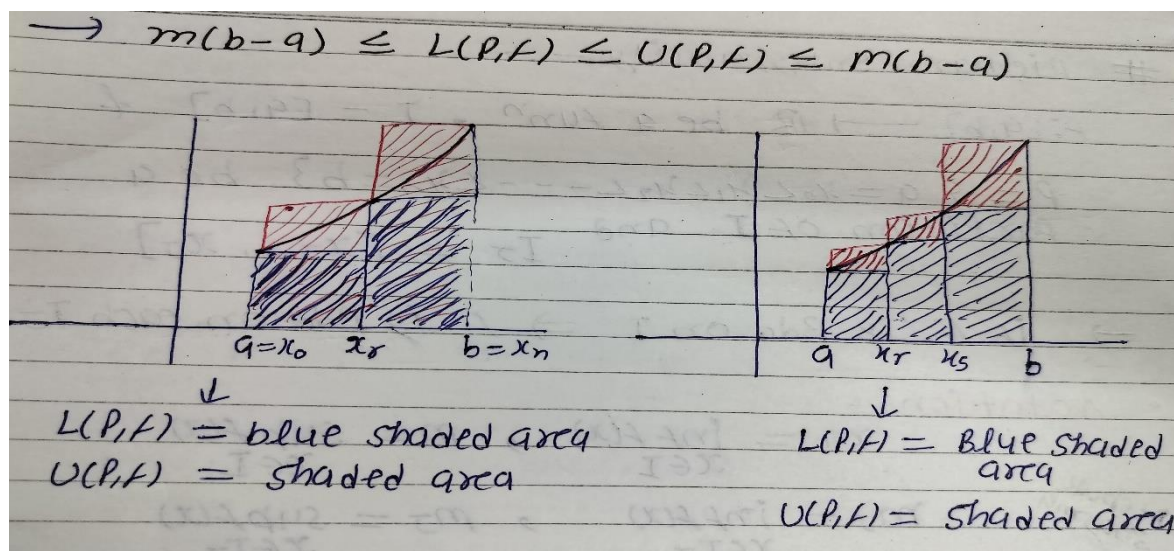 → m(b-a) ≤ L(P,f) ≤ U(P,f) ≤ m(b-a)
a=x₀ xᵣ b=xₙ
a xᵣ xₛ b
↓
L(P,f) = blue shaded area
U(P,f) = shaded area
↓
L(P,f) = Blue shaded
area
U(P,f) = shaded area